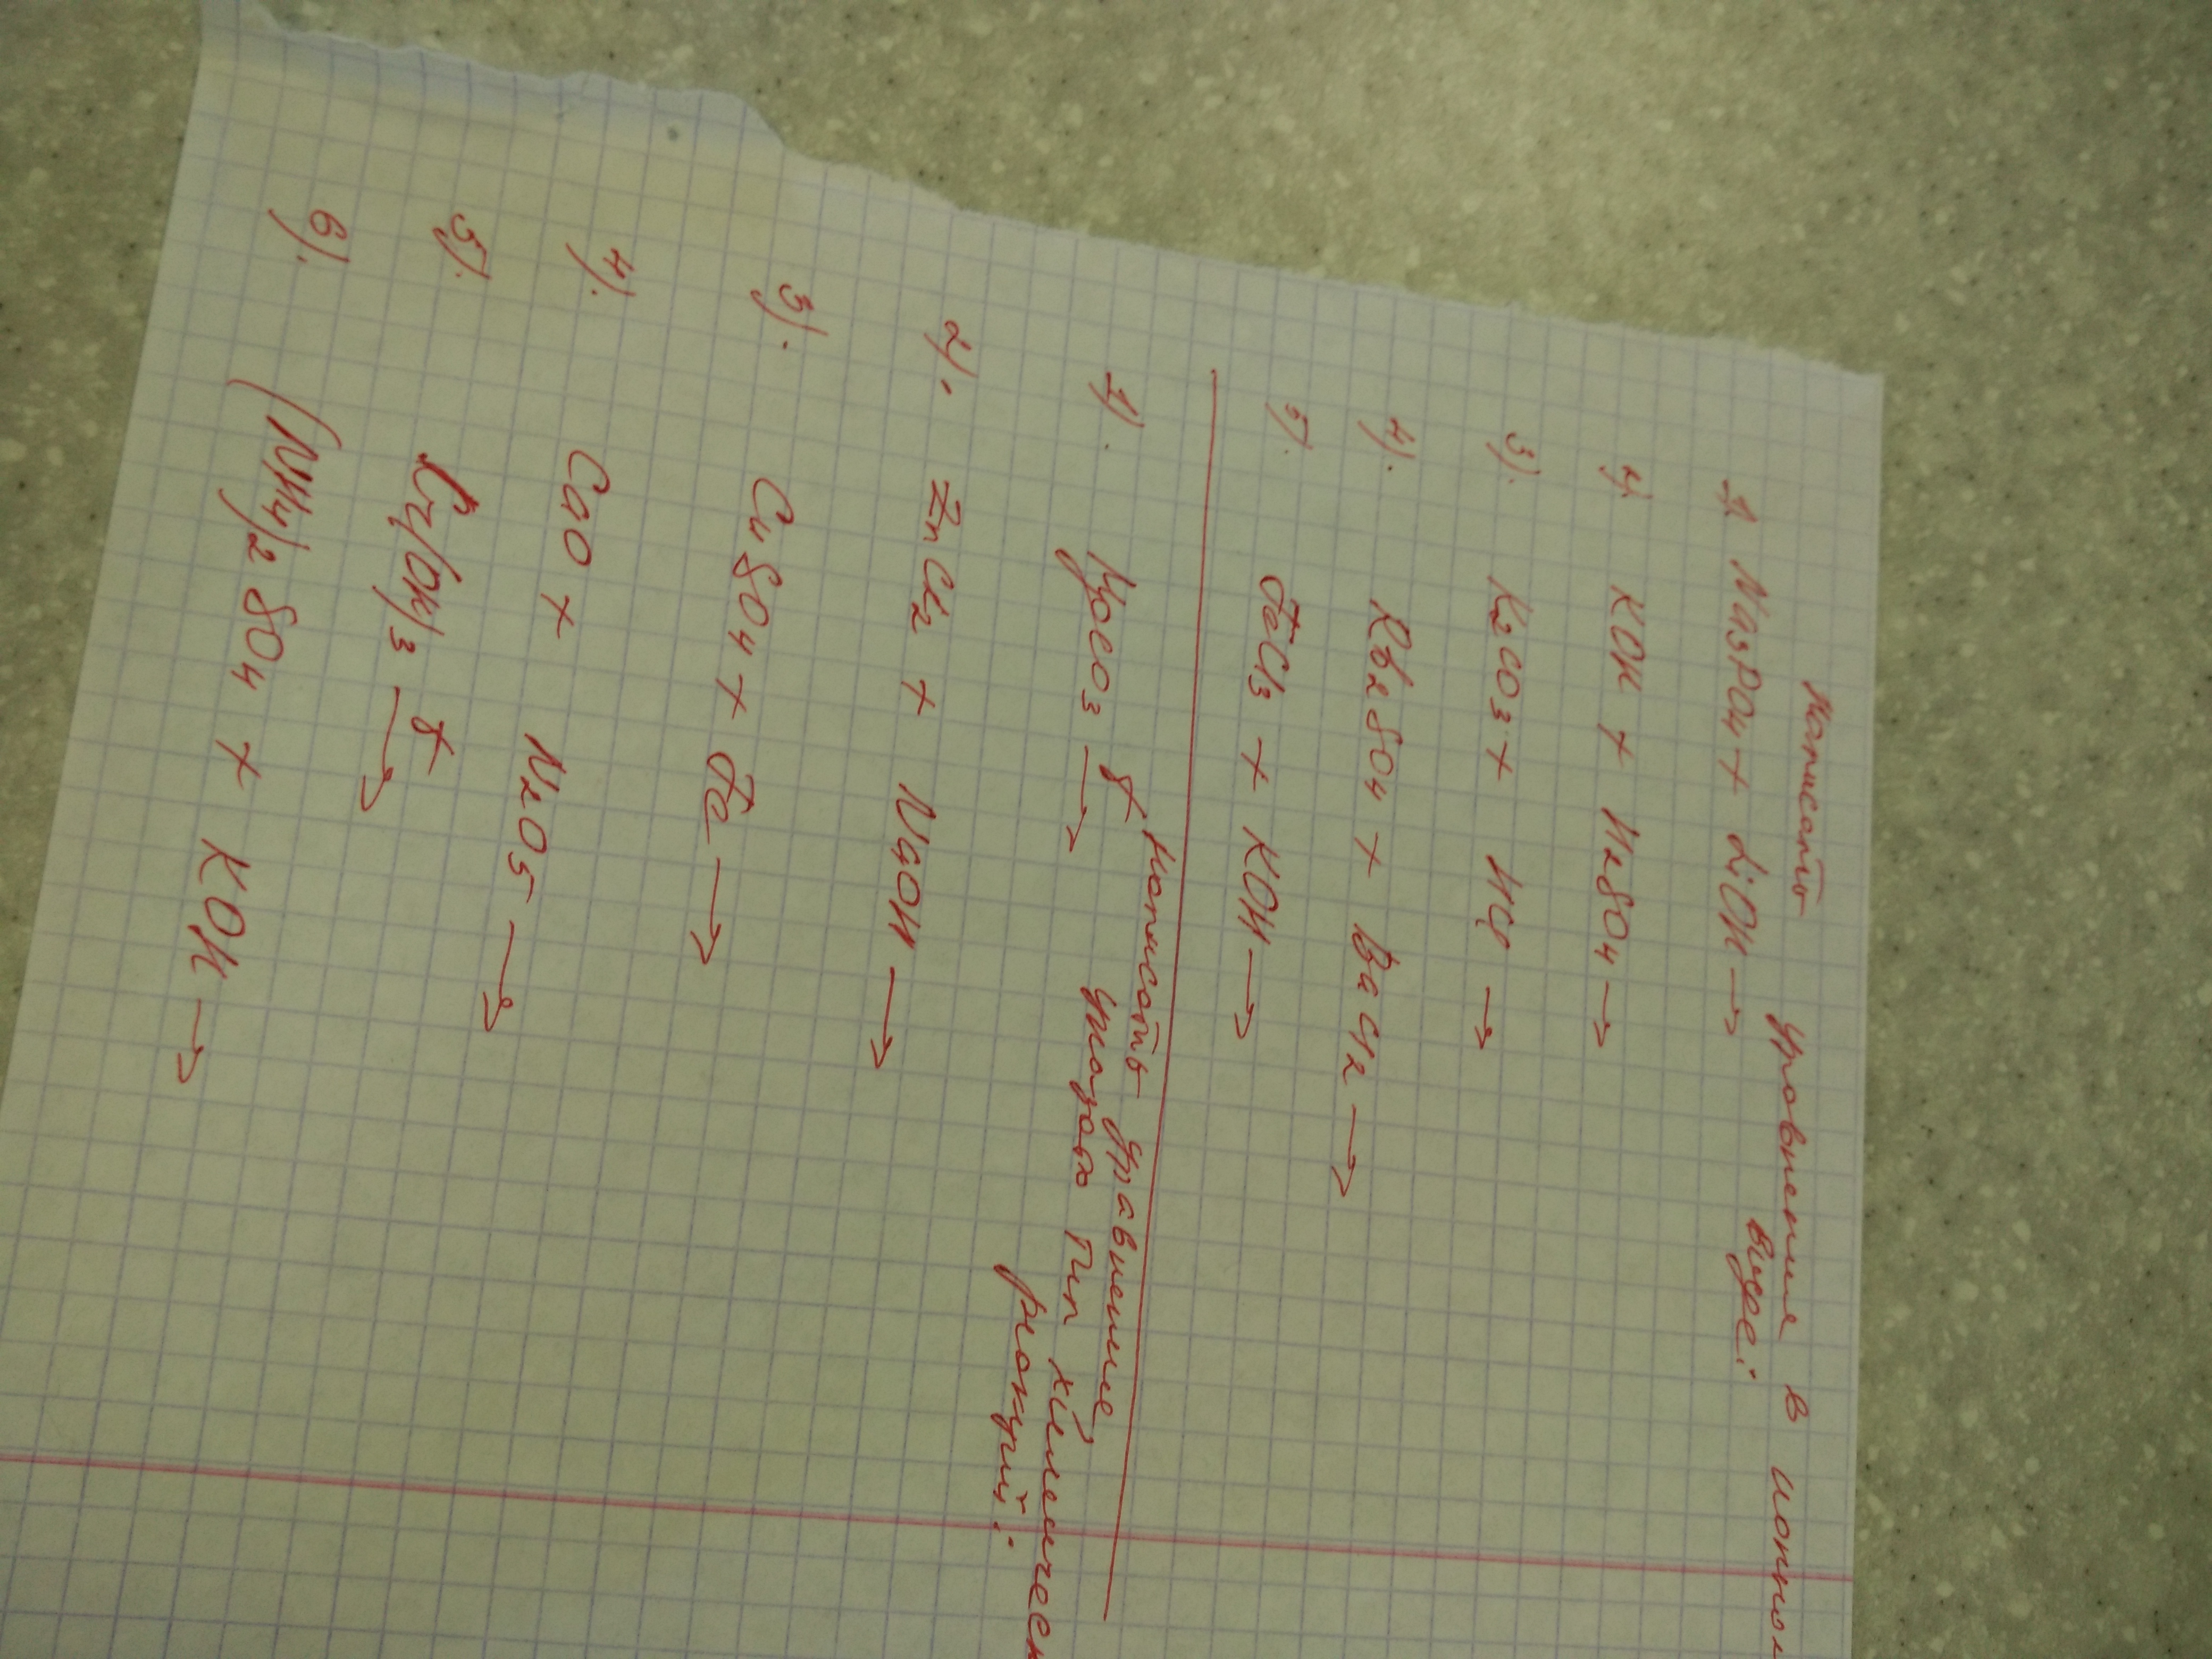 Написать уравнения в ионном
виде:
1) Na3PO4 + LiOH →
2) KOH + H2SO4 →
3). K2CO3 + HCl →
4). Rb2SO4 + BaCl2 →
5). FeCl3 + KOH →
Написать уравнение
указать тип химическ
реакций:
1). CO3 t →
2). ZnCl2 + NaOH →
3). CuSO4 + Fe →
4). CaO + N2O5 →
5). Cr(OH)3 t →
6). (NH4)2SO4 + KOH →